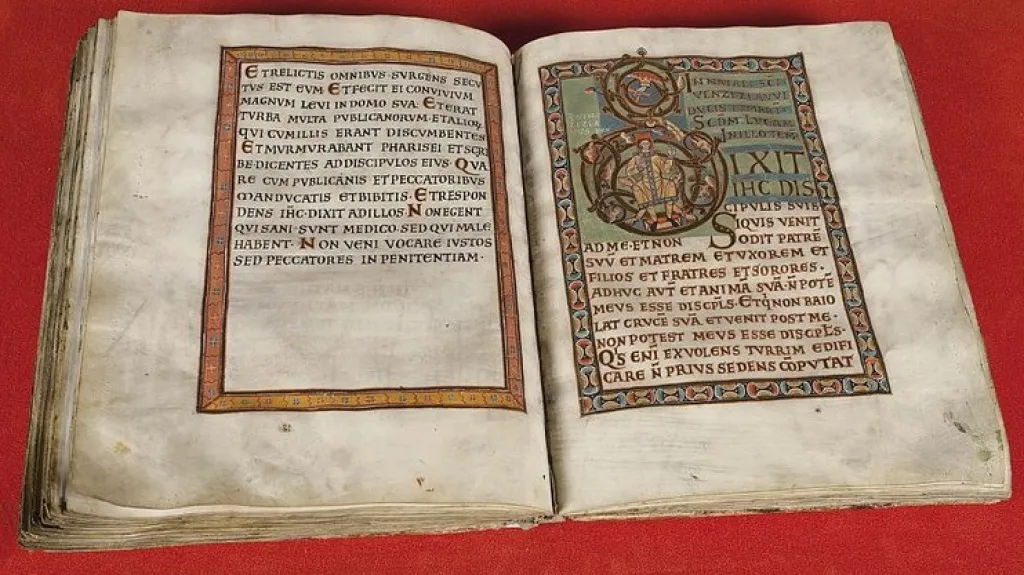 ET RELICTIS OMNIBUS · SURGENS SECU
TUS EST EUM ET FECIT EI CONVIVIUM
MAGNUM LEVI IN DOMO SUA · ET ERAT
TURBA MULTA PUBLICANORUM · ET ALIOR
QUI CUM ILLIS ERANT DISCUMBENTES
ET MURMURABANT PHARISEI ET SCRI
BE · DICENTES AD DISCIPULOS EIUS · QUA
RE CUM PUBLICANIS ET PECCATORIBUS
MANDUCATIS ET BIBITIS · ET RESPON
DENS IHC · DIXIT AD ILLOS · NON EGENT
QUI SANI SUNT MEDICO · SED QUI MALE
HABENT · NON VENI VOCARE IUSTOS
SED PECCATORES IN PENITENTIAM ·
IN NATALE SCI
VENZEZLAVVI
DUCIS
SCDM LUCAM
IN ILLO TEMP
DIXIT
IHC DIS
CIPULIS SUIS
SIQUIS VENIT
AD ME · ET NON ODIT PATRĒ
SUŪ ET MATREM ET UXOREM ET
FILIOS ET FRATRES ET SORORES ·
ADHUC AUT ET ANIMĀ SUĀ · N̄ POTĒ
MEUS ESSE DISCPLS · ET Q̇ NON BAIO
LAT CRUCĒ SUĀ · ET VENIT POST ME ·
NON POTEST MEUS ESSE DISCPLS ·
QS ENĪ EX VOLENS TURRIM EDIFI
CARE N̄ PRIUS SEDENS CŌPUTAT